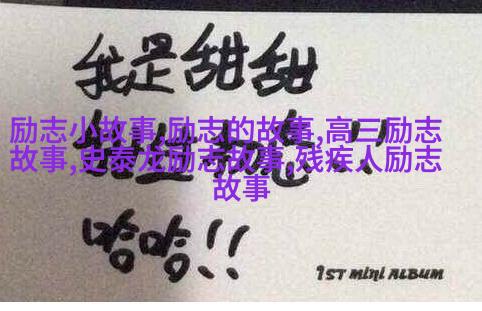 我是甜甜
励志小故事,励志的故事,高三励志
故事,史泰龙励志故事,残疾人励志
故事
哈哈!!
1ST MINI ALBUM